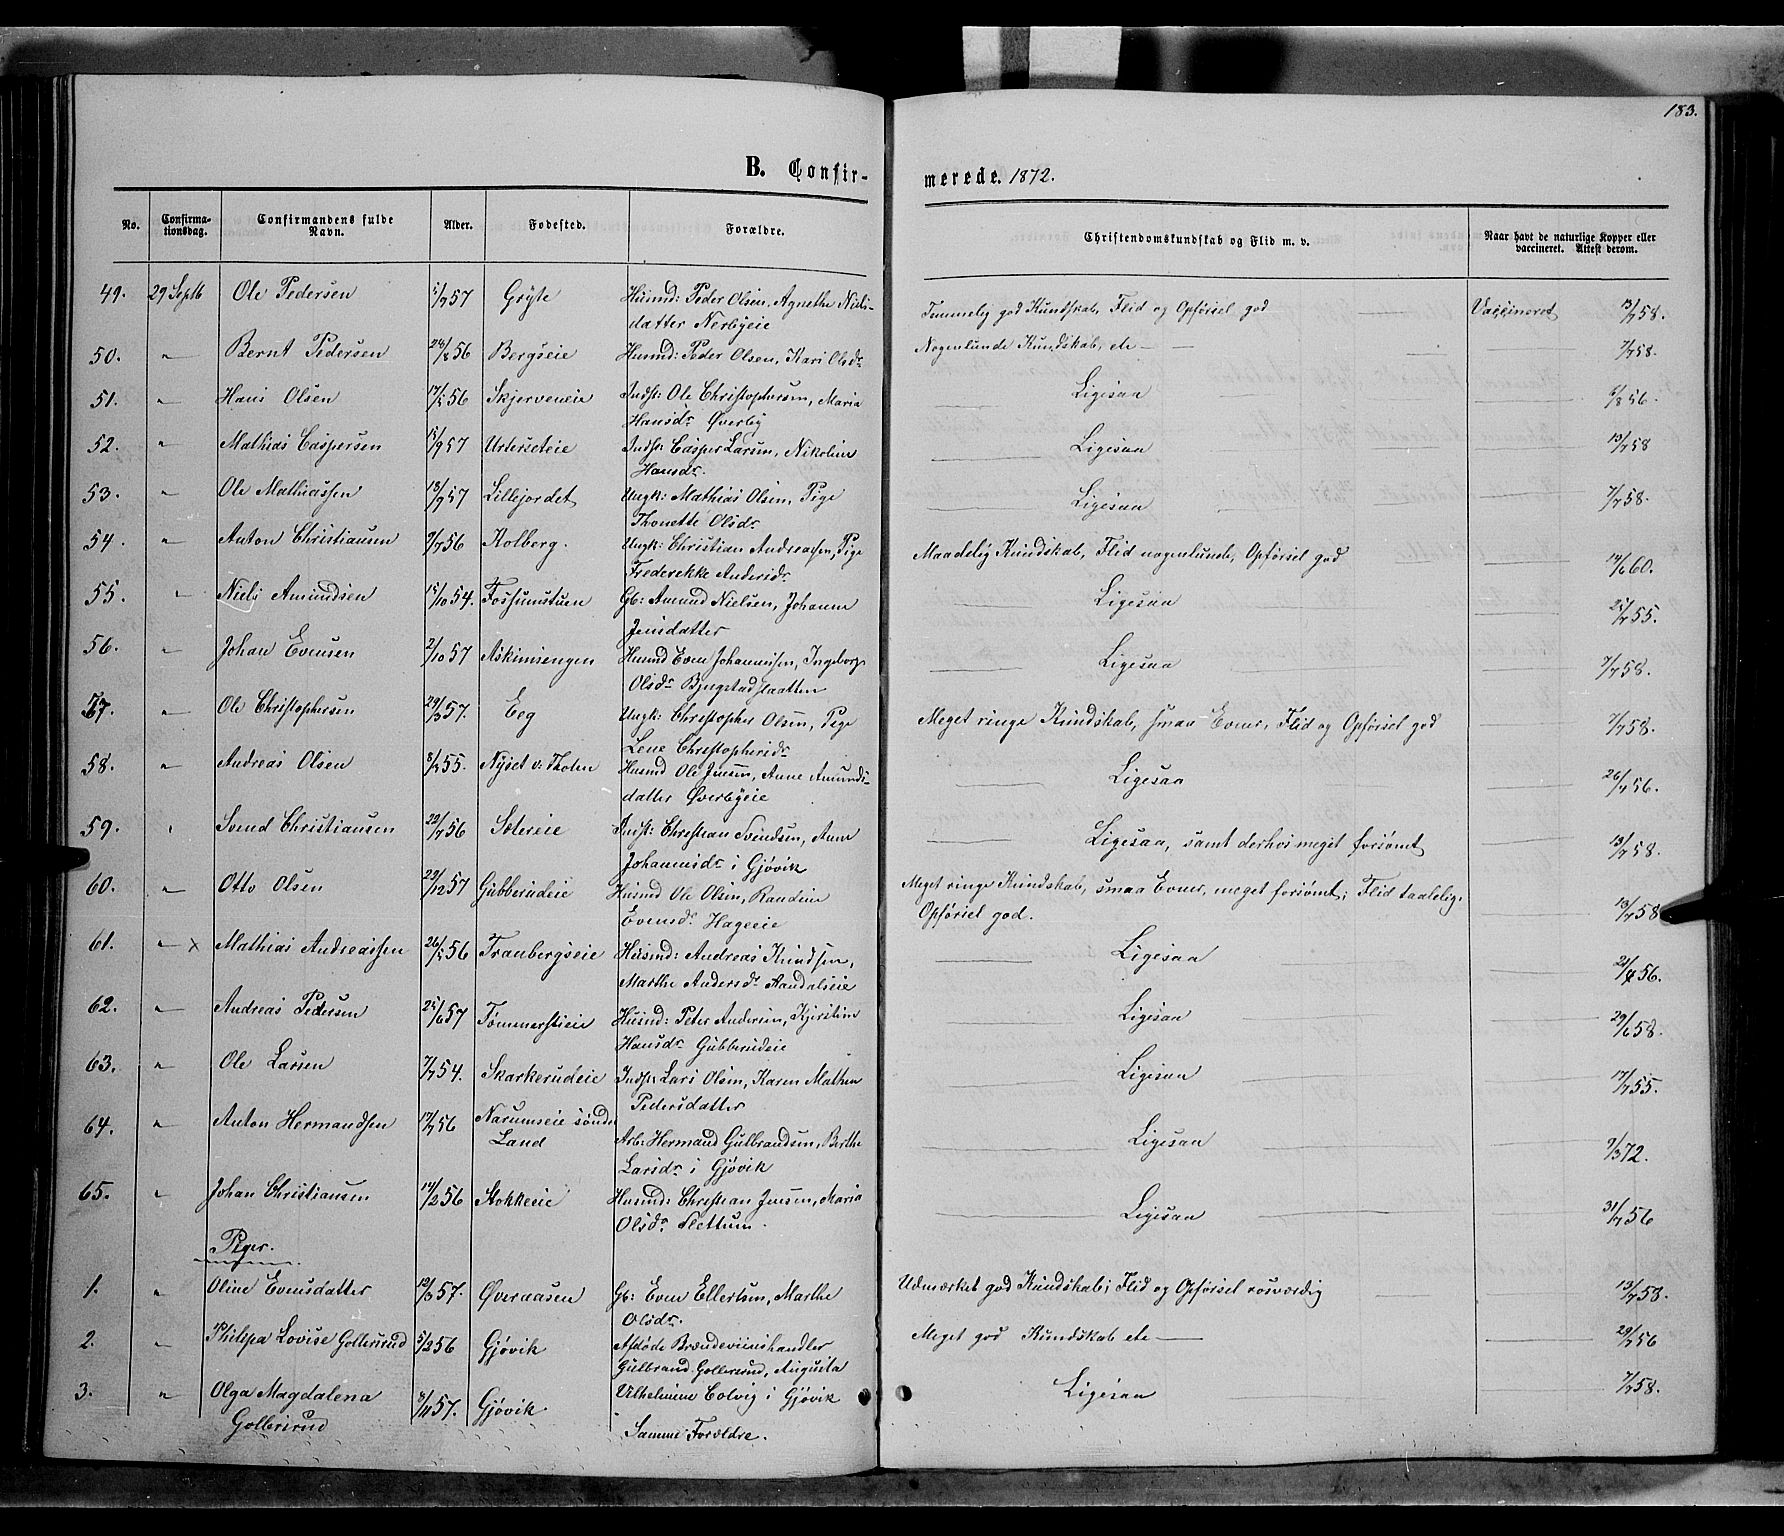 183.
B. Confirmerede. 1872.
No. Confirmationsdag. Confirmandens fulde Navn. Alder. Fødested. Forældre. Christendomskundskab og Flid m. v. Naar havt de naturlige Kopper eller vaccineret. Attest derom.
49. 29 Septb Ole Pedersen 57 Gryte Husmd: Peder Olsen, Agnethe Niels- Temmelig god Kundskab, Flid og Opførsel god Vaccineret 13/7 58.
datter Nerbyeie
50. " Bernt Pedersen 56 Bergseie Husmd: Peder Olsen, Kari Olsdr Nogenlunde Kundskab, etc 7/7 58.
51. " Hans Olsen 56 Skjerveneie Indst: Ole Christophersen, Maria Ligesaa 6/8 56.
Hansdr Øverby
52. " Mathias Caspersen 15/9 57 Indst: Casper Larsen, Nikoline Ligesaa 13/7 58
Hansdr.
53. " Ole Mathiassen 18/9 57 Lillejordet Ungk: Mathias Olsen, Pige Ligesaa 7/7 58.
Thonette Olsdr
54. " Anton Christiansen 9/7 56 Kolberg. Ungk: Christian Andreassen, Pige Maadelig Kundskab, Flid nogenlunde, Opførsel god 14/6 60.
Frederekke Andersdr
55. " Niels Amundsen 15/10 54. Fossumstuen Gb: Amund Nielsen, Johanne Ligesaa 25/7 55.
Jensdatter
56. " Johan Evensen 2/10 57 Askimsengen Husmd Even Johannessen, Ingeborg Ligesaa 7/7 58.
Olsdr Bjugstadslaatten
57. " Ole Christophersen 29/3 57. Eeg Ungk: Christopher Olsen, Pige Meget ringe Kundskab, smaa Evner, Flid og Opførsel god 7/7 58.
Lene Christophersdr
58. " Andreas Olsen 55. Nyset v: Tholm Husmd Ole Jensen, Anne Amunds- Ligesaa 26/7 56.
datter Øverbyeie
59. " Svend Christiansen 22/7 56 Sætereie Indst: Christian Svendsen, Anne Ligesaa, samt derhos meget forsømt 13/7 58.
Johannesdr i Gjøvik
60. " Otto Olsen 29/12 57 Gubberudeie Husmd Ole Olsen, Randine Meget ringe Kundskab, smaa Evner, meget forsømt; Flid taalelig. 13/7 58
Evensdr Hageeie Opførsel god.
61. " x Mathias Andreassen 56 Tranbergseie Husmd: Andreas Knudsen, Ligesaa 56.
Marthe Andersdr Aandalseie
62. " Andreas Pedersen 25/6 57 Tømmerstieie Husmd: Peter Andersen, Kjerstine Ligesaa 29/6 58.
Hansdr Gubberudeie
63. " Ole Larsen 7/7 54. Skarkerudeie Indst: Lars Olsen, Karen Mathea Ligesaa 17/7 55.
Pedersdatter
64. " Anton Hermandsen 56 Narumseie søndr Arb: Hermand Gulbrandsen, Berthe Ligesaa 9/3 72.
Land Larsdr i Gjøvik
65. " Johan Christiansen 14/2 56 Stokkeeie Husmd: Christian Jensen, Maria Ligesaa 31/7 56
Olsdr Slettum.
Piger.
1. " Oline Evensdatter 12/3 57. Øveraasen Gb: Even Ellertsen, Marthe Udmærket god Kundskab; Flid og Opførsel rosværdig 13/7 58.
Olsdr.
2. " Philepa Lovise Gollerrud 5/2 56 Gjøvik Afdøde Brændeviinshandler Meget god Kundskab etc 29/7 56
Gulbrand Gollerrud, Augusta
3. " Olga Magdalena 8/11 57. Gjøvik Vilhelmine Colvig i Gjøvik Ligesaa 7/7 58.
Gollerrud Samme Forældre.